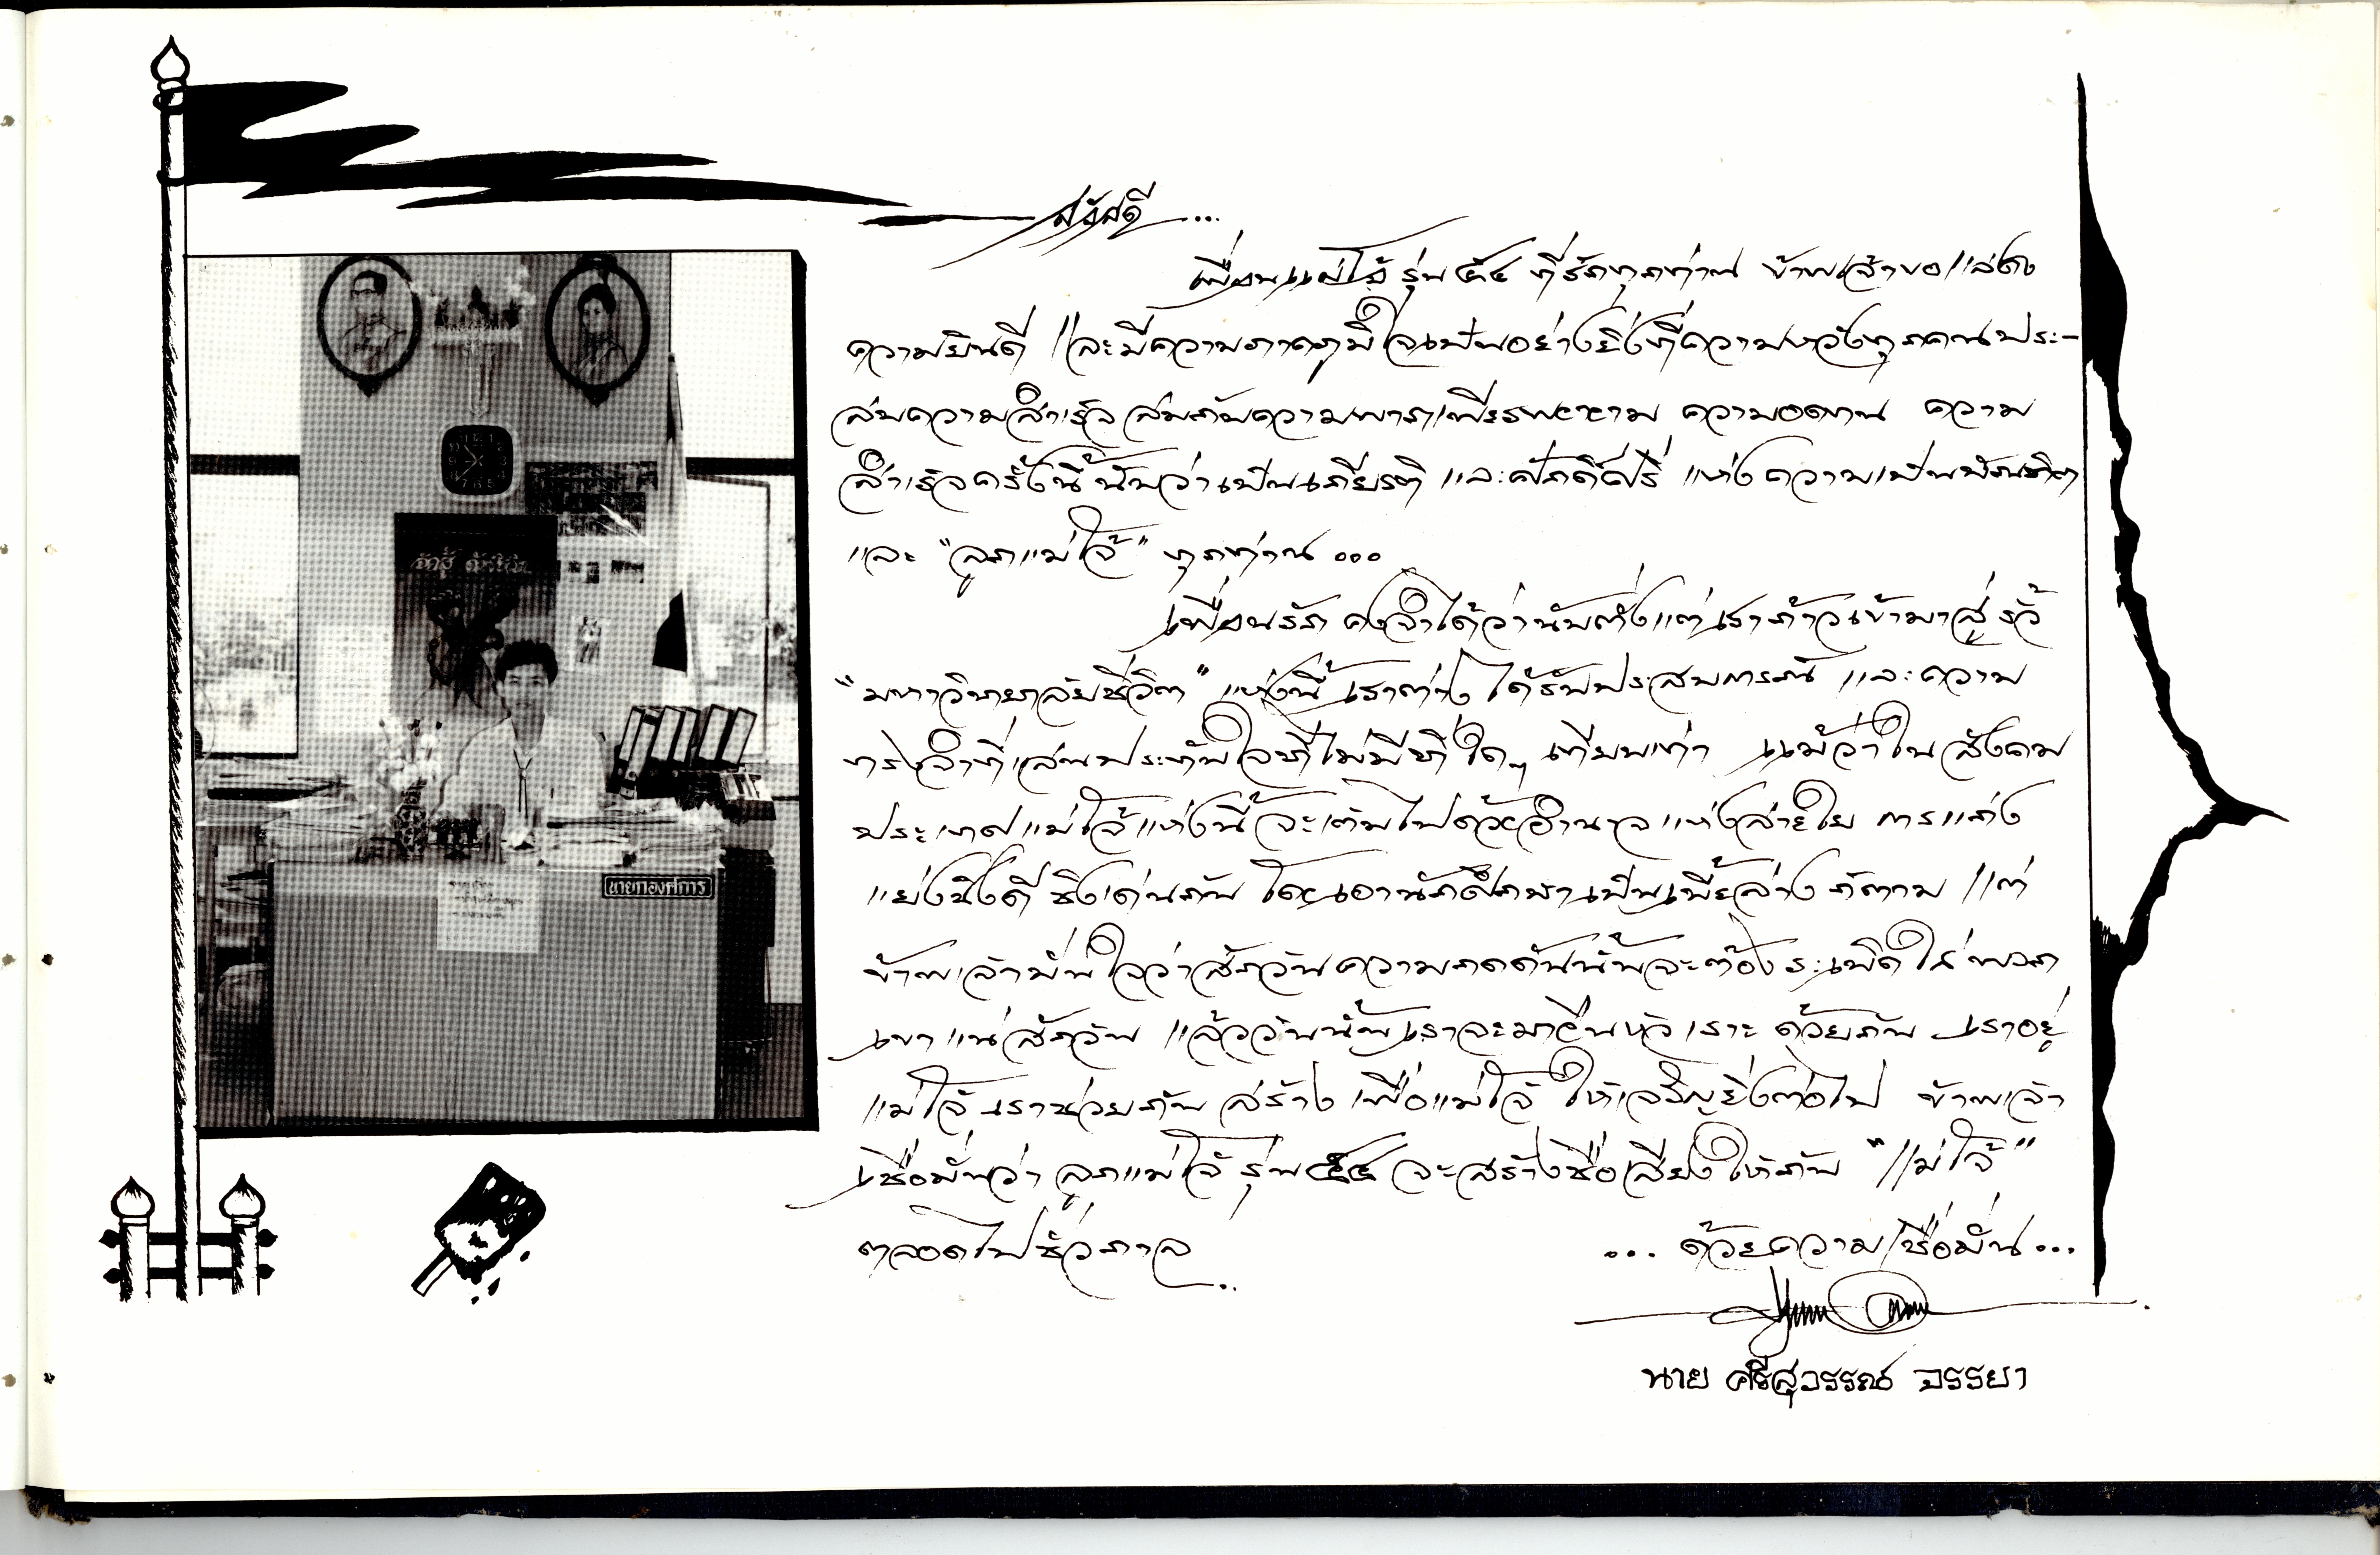 สวัสดี...
เพื่อนแม่โจ้ รุ่น ๕๔ ที่รักทุกท่าน ข้าพเจ้าขอแสดง
ความยินดี และมีความภาคภูมิใจเป็นอย่างยิ่งที่ความหวังทุกคนประ-
สบความสำเร็จ สมกับความพากเพียรพยายาม ความอดทน ความ
สำเร็จครั้งนี้นับว่าเป็นเกียรติ และศักดิ์ศรี แห่งความเป็นบัณฑิต
และ "ลูกแม่โจ้" ทุกท่าน ...
เพื่อนรัก คงจำได้ว่านับตั้งแต่เราก้าวเข้ามาสู่ รั้ว
"มหาวิทยาลัยชีวิต" แห่งนี้ เราต่างได้รับประสบการณ์ และความ
ทรงจำที่แสนประทับใจที่ไม่มีที่ใดๆ เทียบเท่า แม้ว่าในสังคม
ประเทศแม่โจ้แห่งนี้จะเต็มไปด้วยอำนาจแห่งสายใย การแก่ง
แย่งชิงดี ชิงเด่นกัน โดยเอานักศึกษาเป็นเบี้ยล่าง ก็ตาม แต่
ข้าพเจ้ามั่นใจว่าสักวันความกดดันนั้นจะต้องระเบิดใส่พวก
เขาแน่สักวัน แล้ววันนั้นเราจะมายืนหัวเราะ ด้วยกัน เราอยู่
แม่โจ้ เราช่วยกัน สร้าง เพื่อแม่โจ้ ให้เจริญยิ่งต่อไป ข้าพเจ้า
เชื่อมั่นว่า ลูกแม่โจ้ รุ่น ๕๔ จะสร้างชื่อเสียงให้กับ "แม่โจ้"
ตลอดไปชั่วกาล..
... ด้วยความเชื่อมั่น...
นาย ศรีสุวรรณ จรรยา
จักสู้ ด้วยชีวิต
นายกองค์การ